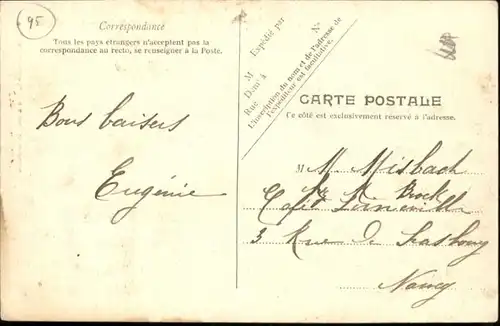 95
Correspondance
Tous les pays étrangers n'acceptent pas la
correspondance au recto, se renseigner à la Poste.
Bons baisers
Eugénie
Nº
Expédié par
M
Demt à
Rue
L'inscription du nom et de l'adresse de
l'expéditeur est facultative.
CARTE POSTALE
Ce côté est exclusivement réservé à l'adresse.
M M Misbach
Brock
Café
3 Rue de Strasbourg
Nancy